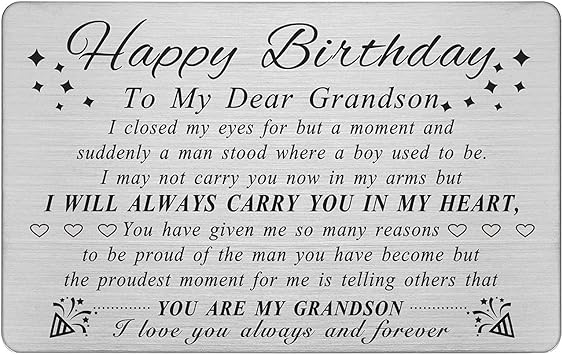 Happy Birthday
To My Dear Grandson,
I closed my eyes for but a moment and
suddenly a man stood where a boy used to be.
I may not carry you now in my arms but
I WILL ALWAYS CARRY YOU IN MY HEART,
You have given me so many reasons
to be proud of the man you have become but
the proudest moment for me is telling others that
YOU ARE MY GRANDSON
I love you always and forever